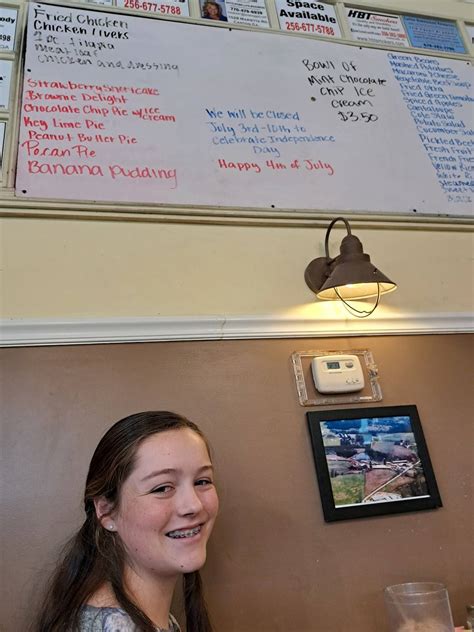 256-677-5788
Space
Available
HBI
256-677-5788
Fried Chicken
Chicken Livers
2 pc. Tilapia
Meat loaf
Chicken and dressing
Strawberry shortcake
Brownie Delight
Chocolate Chip Pie w/ice
cream
Key Lime Pie
Peanut Butter Pie
Pecan Pie
Banana pudding
We will be closed
July 3rd-10th to
celebrate Independence
Day
Happy 4th of July
Bowl of
Mint Chocolate
Chip Ice
cream
$3.50
Green Beans
Mashed Potatoes
Macaroni & Cheese
Vegetable Beef
Fried Okra
Fried Green
Spiced Apples
Cole Slaw
Potato Salad
Cucumber
Pickled Beet
Fresh
French
Yellow Rice
White